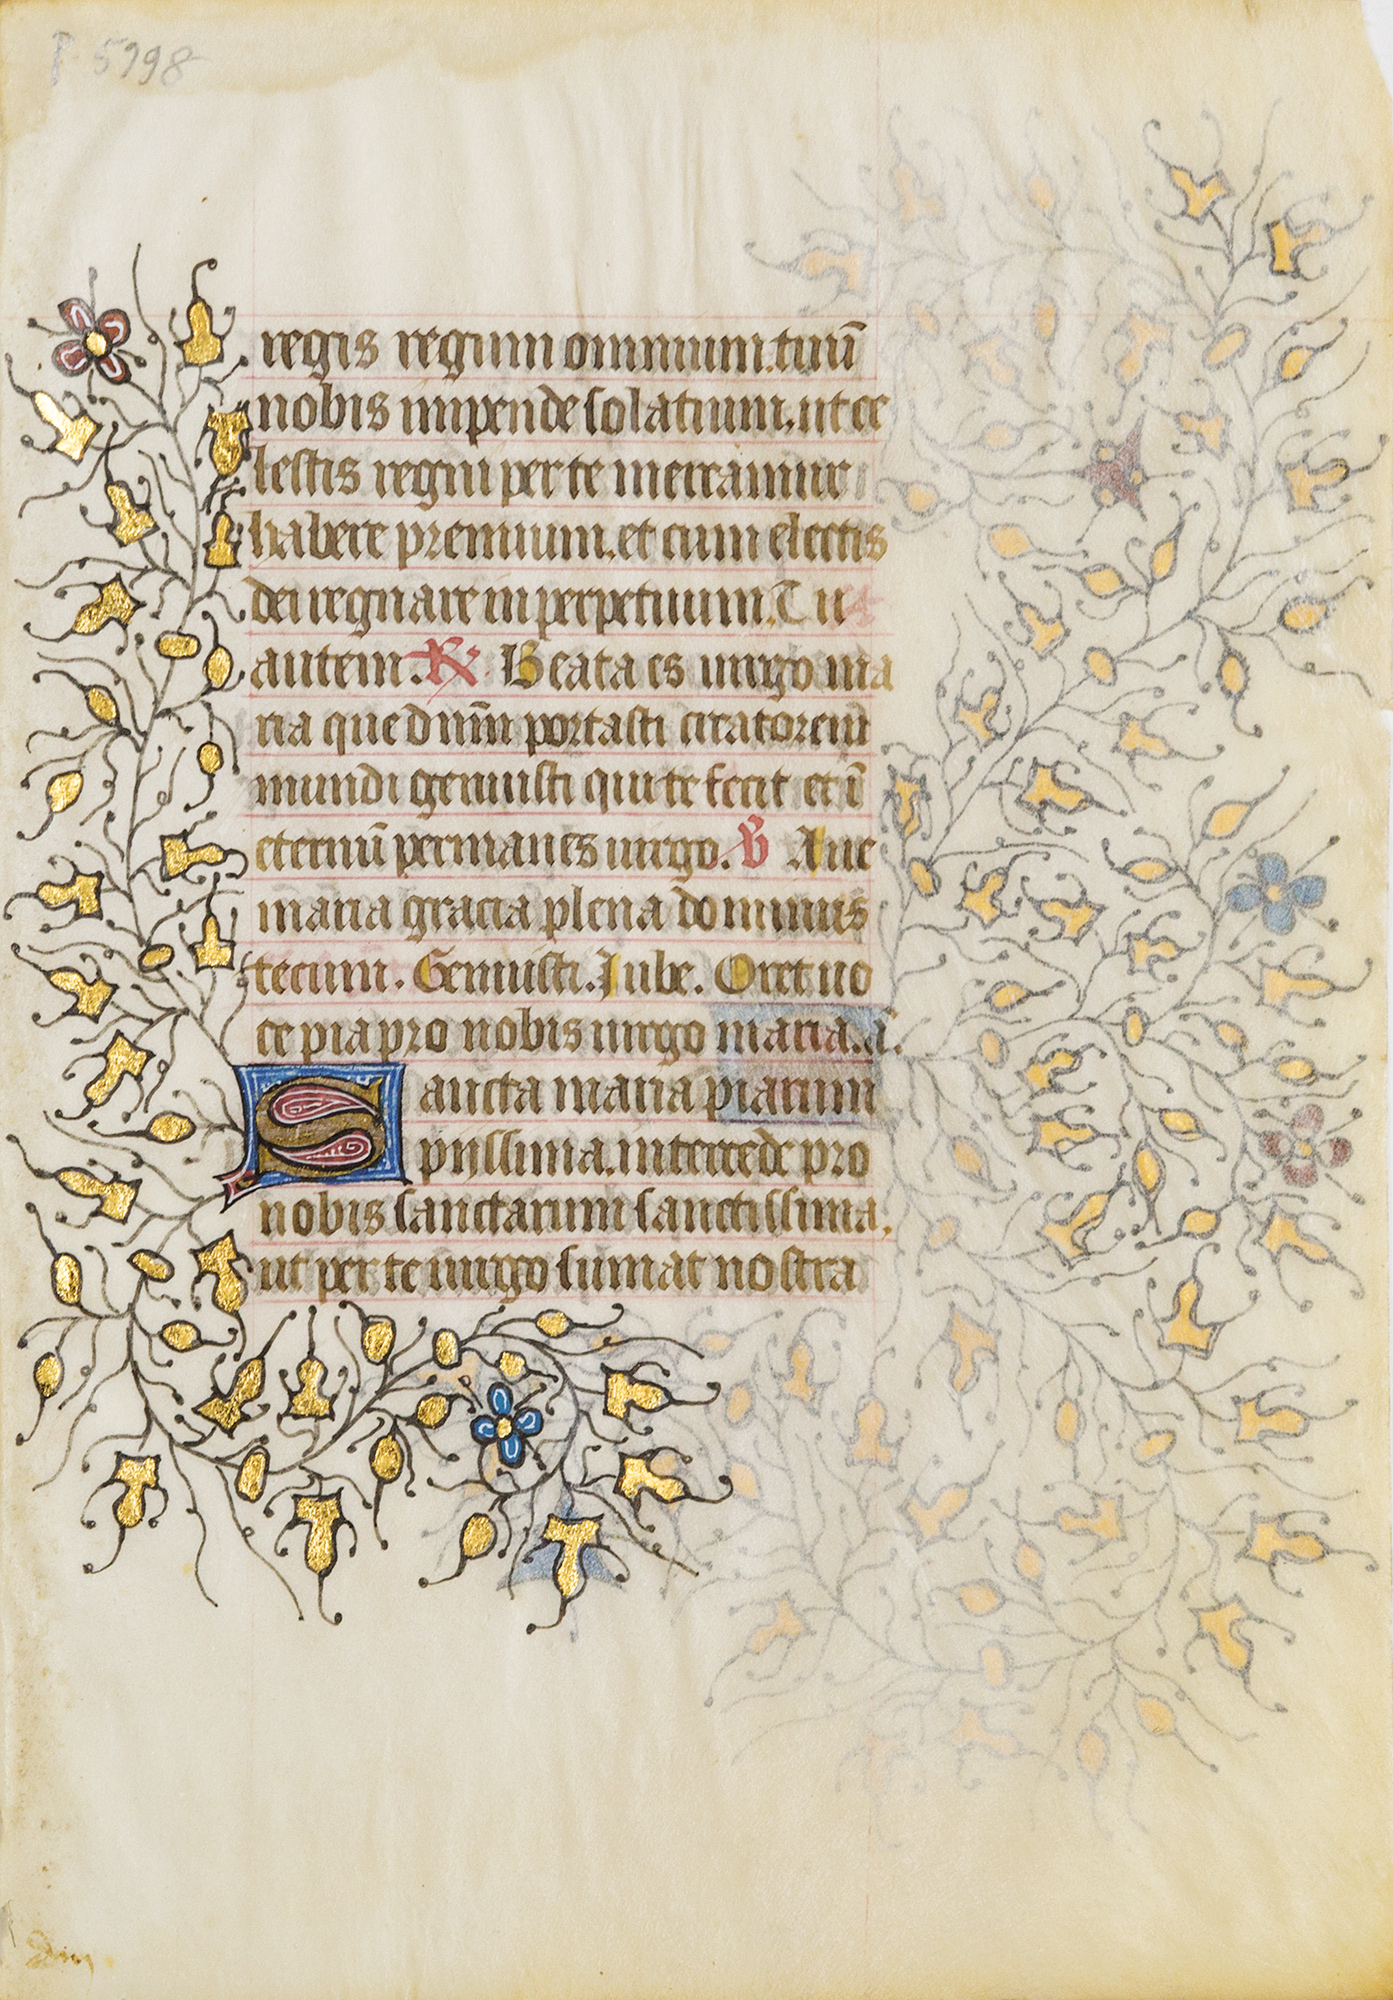 P 5998
regis regum omnium. tuū
nobis impende solatium. ut ce
lestis regni per te mereamur
habere premium. et cum electis
dei regnare in perpetuum. Tu
autem. ℟ Beata es uirgo ma
ria que dn̄m portasti creatorem
mundi genuisti qui te fecit et ī
eternū permanes uirgo. ℣ Aue
maria gracia plena dominus
tecum. Genuisti. Iube. Oret uo
ce pia pro nobis uirgo maria. a.
Sancta maria piarum
piissima. intercede pro
nobis sanctarum sanctissima.
ut per te uirgo sumat nostra